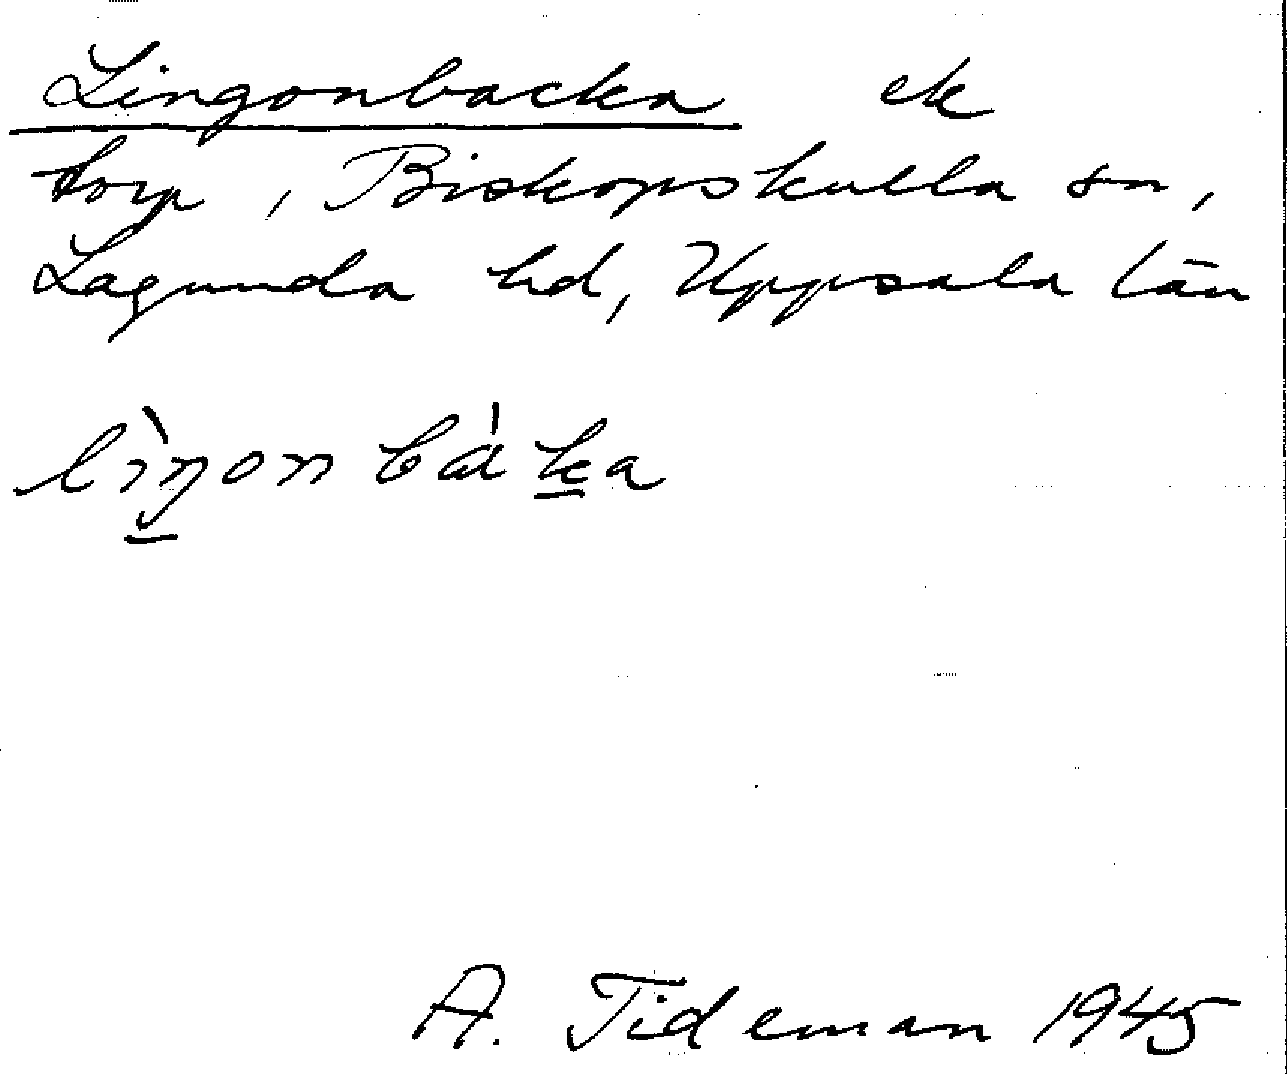 Lingonbacka ek
torp, Biskopskulla sn,
Lagunda hd, Uppsala län
lìŋ̲onbàk̲a
A. Tideman 1945